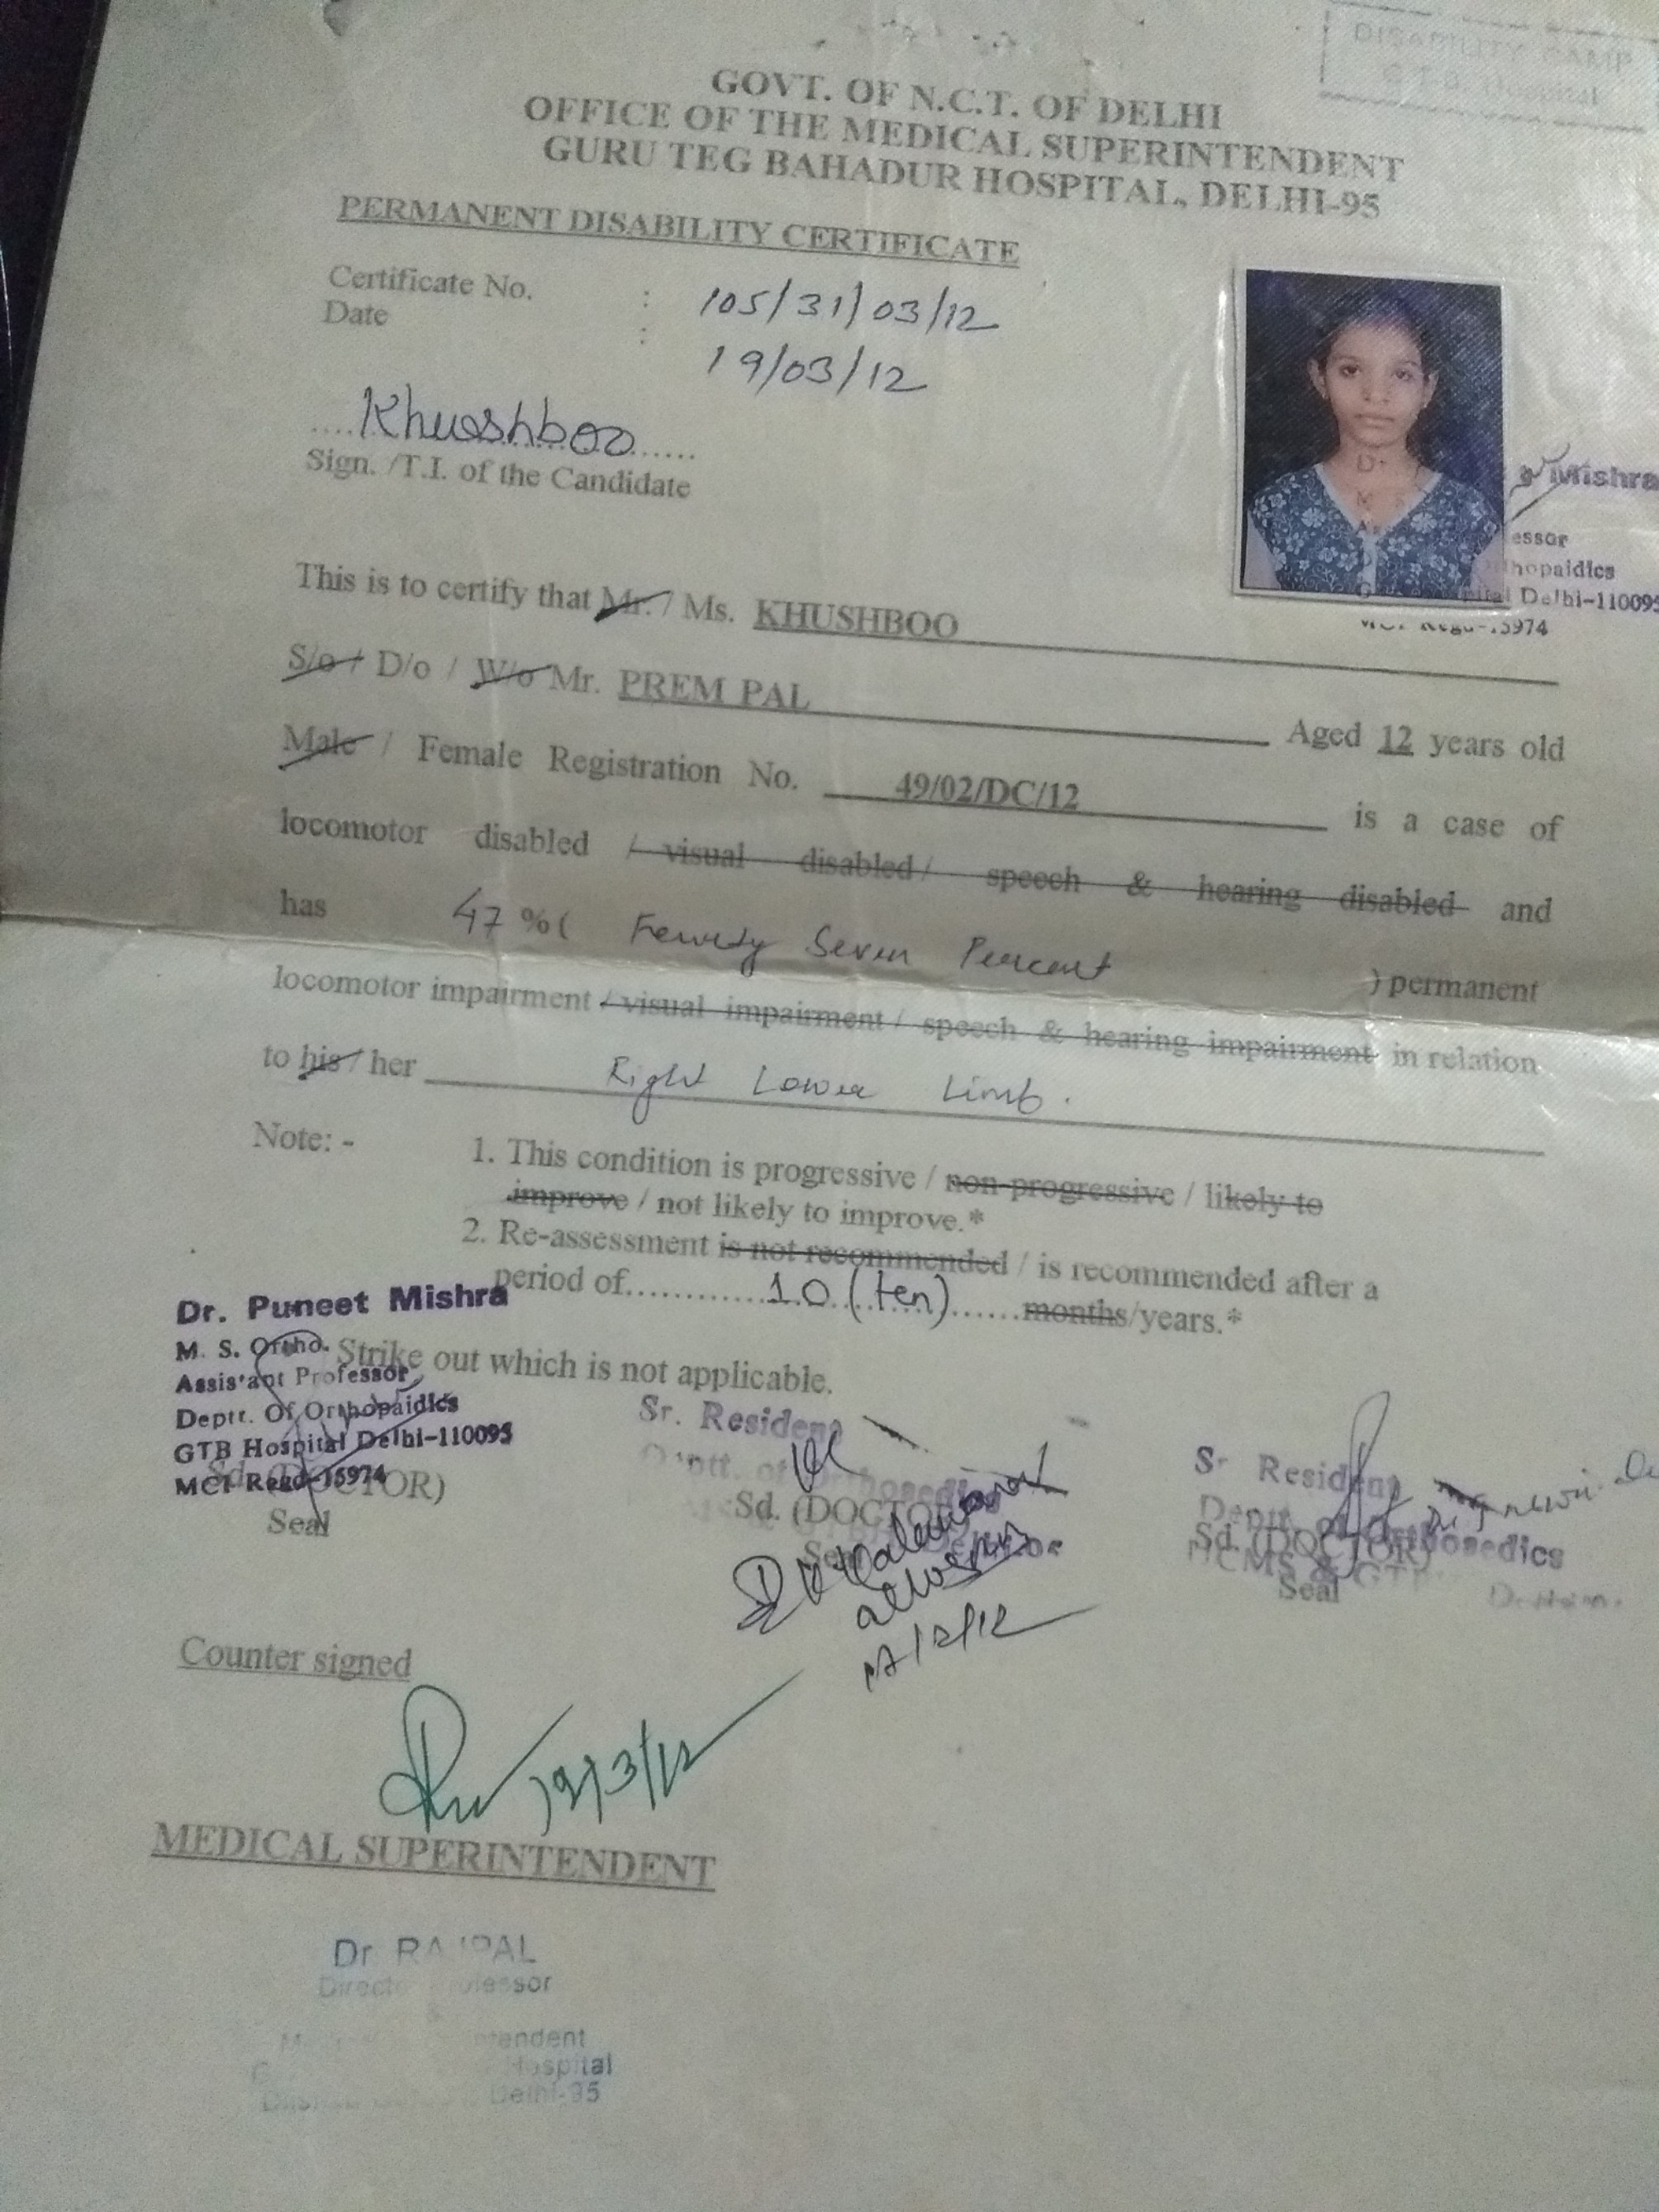 DISABILITY CAMP
G.T.B. Hospital
GOVT. OF N.C.T. OF DELHI
OFFICE OF THE MEDICAL SUPERINTENDENT
GURU TEG BAHADUR HOSPITAL, DELHI-95
PERMANENT DISABILITY CERTIFICATE
Certificate No. : 105/31/03/12
Date : 19/03/12
Khushboo
Sign. /T.I. of the Candidate
Mishra
essor
hopaidics
pital Delhi-110095
MCI Regd-15974
This is to certify that Mr. / Ms. KHUSHBOO
S/o / D/o / W/o Mr. PREM PAL Aged 12 years old
Male / Female Registration No. 49/02/DC/12 is a case of
locomotor disabled / visual disabled / speech & hearing disabled and
has 47 % ( Fourty Seven Percent ) permanent
locomotor impairment / visual impairment / speech & hearing impairment in relation
to his / her Right Lower Limb.
Note: - 1. This condition is progressive / non-progressive / likely to
improve / not likely to improve.*
2. Re-assessment is not recommended / is recommended after a
period of............10 (ten)......months/years.*
Strike out which is not applicable.
Dr. Puneet Mishra
M. S. Ortho.
Assistant Professor
Deptt. Of Orthopaidics
GTB Hospital Delhi-110095
MCI Regd-15974
Sd. (DOCTOR)
Seal
Sr. Resident
Deptt. of Orthopedics
Sd. (DOCTOR)
Seal
Sr Resident
Deptt. of Orthopedics
UCMS & GTB
Sd. (DOCTOR)
Seal
Counter signed
19/3/12
MEDICAL SUPERINTENDENT
Dr RAJPAL
Director Professor
&
Hospital
Delhi-95